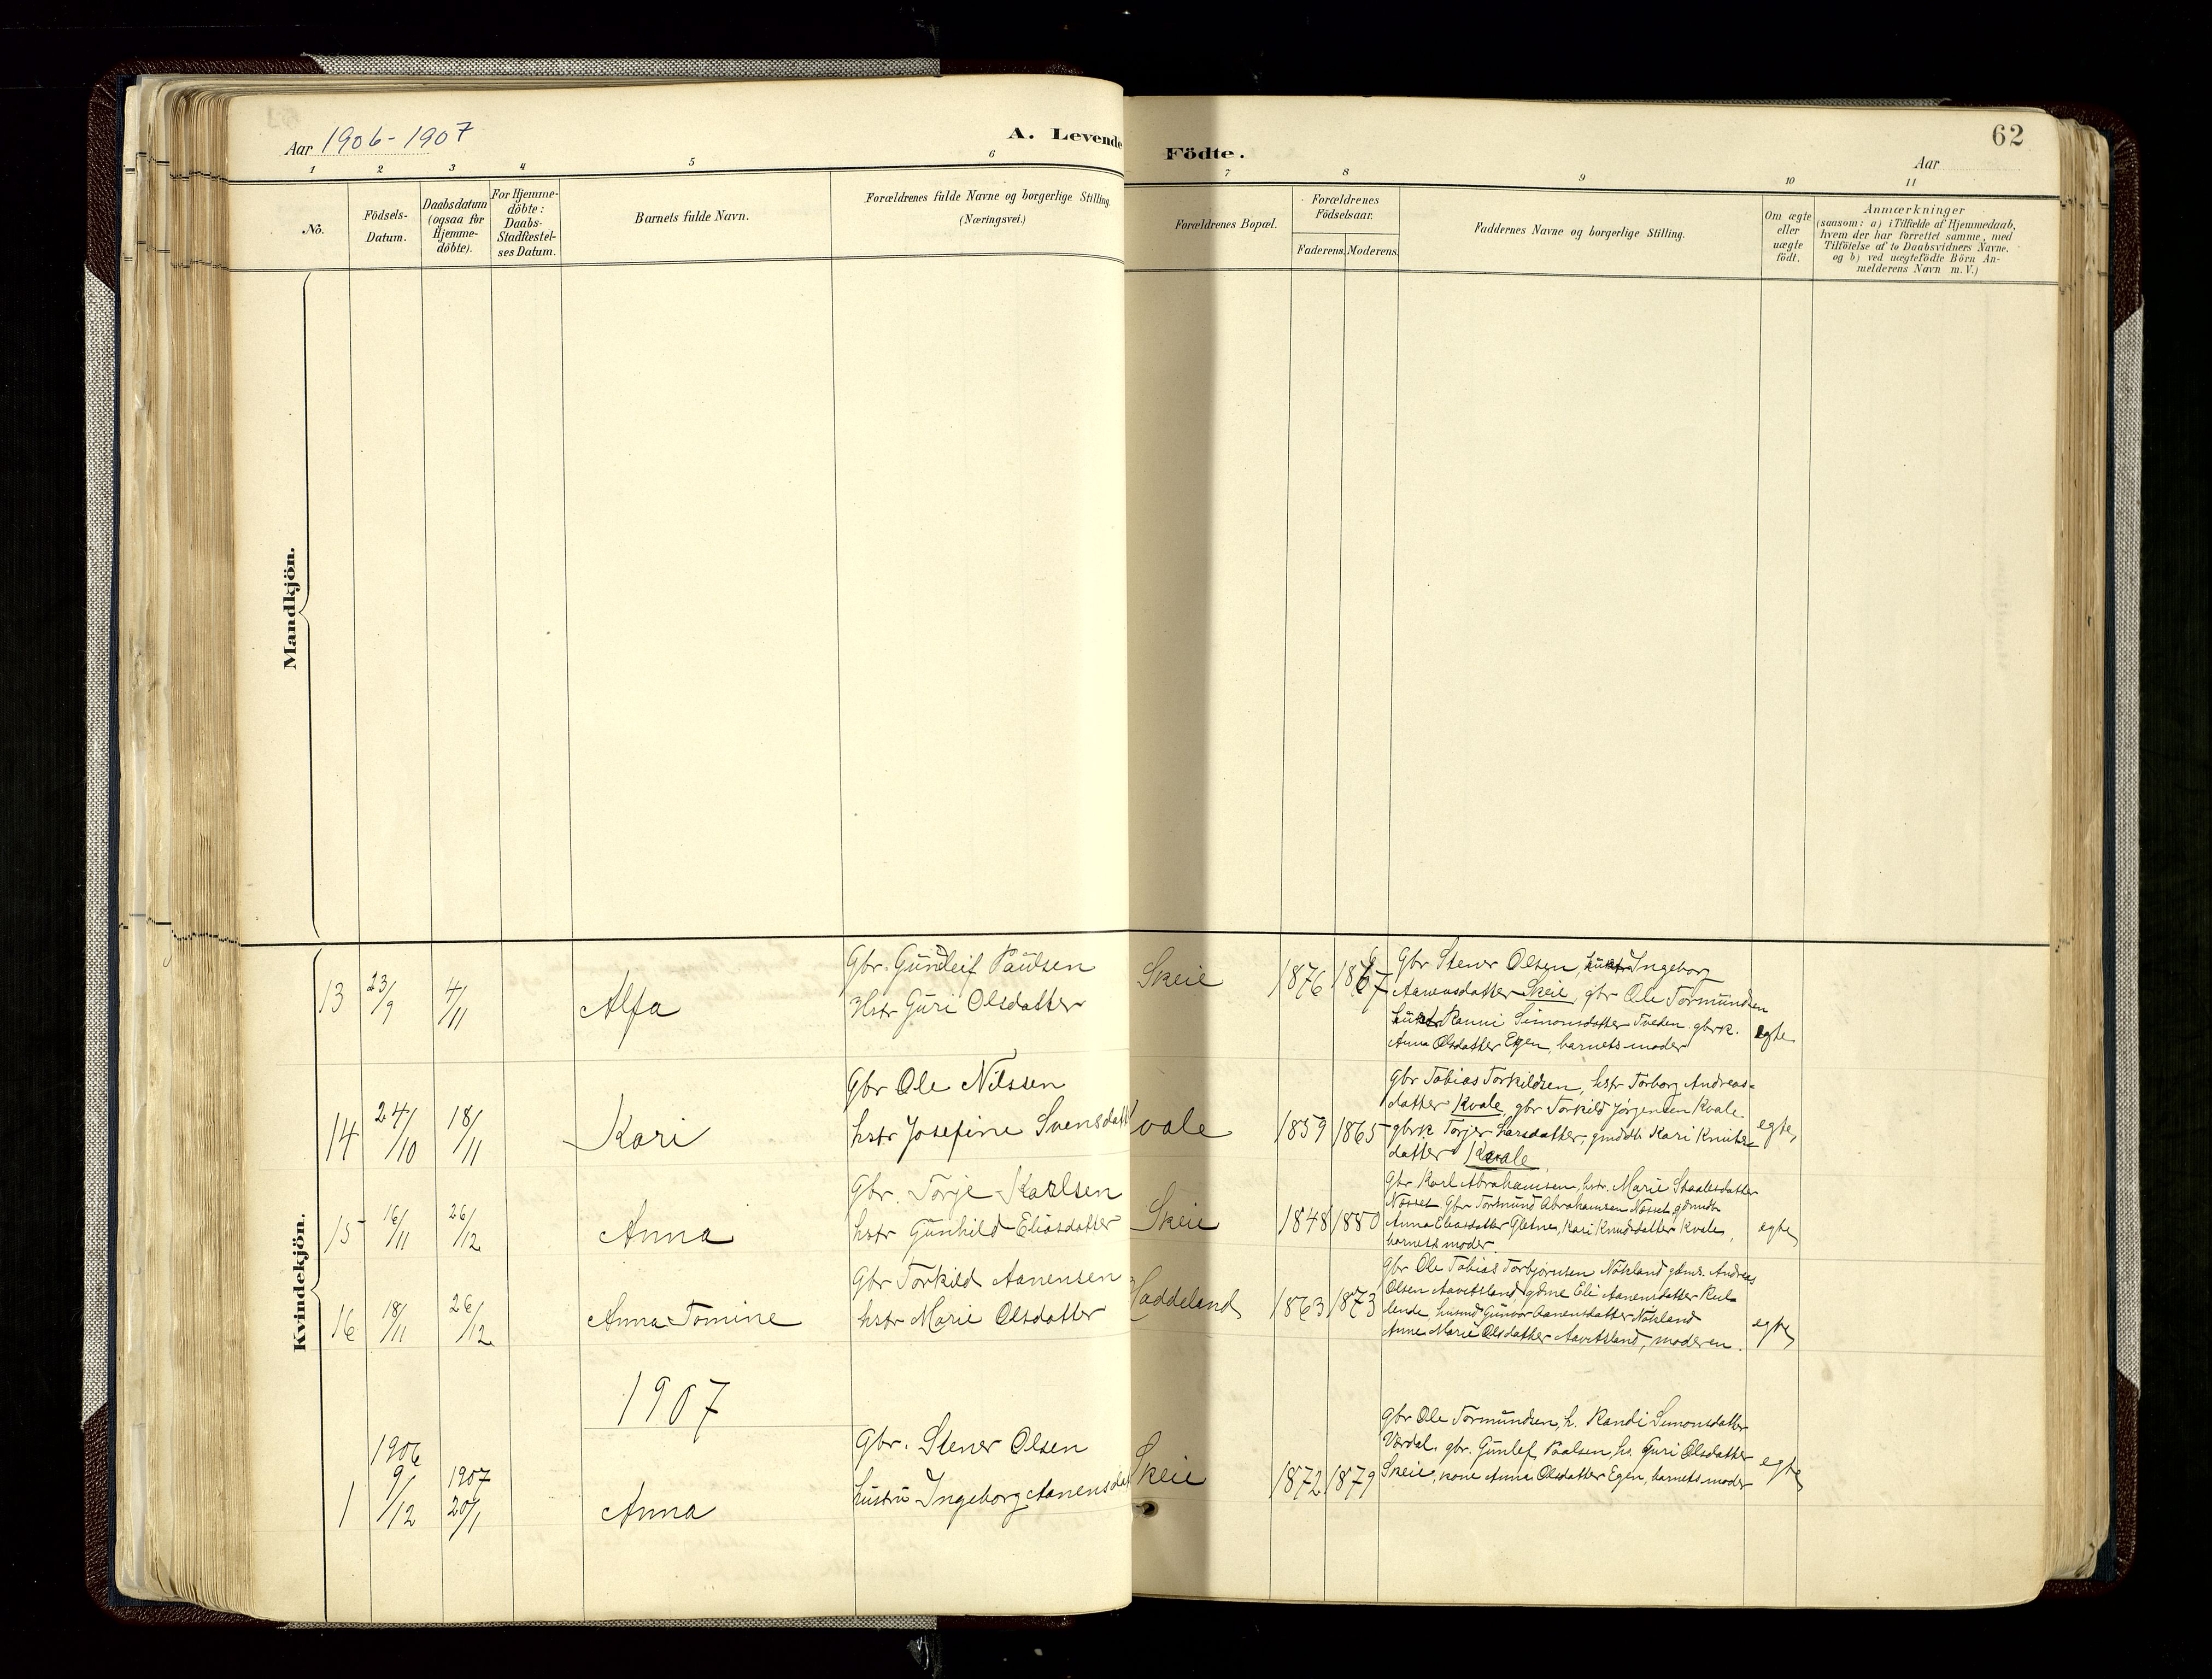 Aar 1906-1907
A. Levende Födte.
62
Aar
1 2 3 4 5 6 7 8 9 10 11
No.
Födsels-
Datum.
Daabsdatum
(ogsaa for
Hjemme-
döbte).
For Hjemme-
döbte:
Daabs-
Stadfæstel-
ses Datum.
Barnets fulde Navn.
Forældrenes fulde Navne og borgerlige Stilling.
(Næringsvei.)
Forældrenes Bopæl.
Forældrenes
Födselsaar.
Faderens. Moderens.
Faddernes Navne og borgerlige Stilling.
Om ægte
eller
uægte
födt.
Anmærkninger
(saasom: a) i Tilfælde af Hjemmedaab,
hvem der har forrettet samme, med
Tilföielse af to Daabsvidners Navne.
og b) ved uægtefödte Börn An-
melderens Navn m.V.)
Mandkjön.
Kvindekjön.
13
23/9
4/11
Alfa
Gbr. Gunleif Paulsen
Hstr Guri Olsdatter
Skeie
1876
1867
Gbr Stener Olsen, hustr Ingeborg
Aanensdatter Skeie, gbr Ole Tormundsen
hustr Ranni Simonsdatter Tveden. gbrk.
Anna Olsdatter Egen, barnets moder
egte
14
24/10
18/11
Kari
Gbr Ole Nilssen
hstr Josefine Svensdatt
Kvale
1859
1865
Gbr Tobias Torkildsen, hstr Torborg Andreas-
datter Kvale, gbr Torkild Jørgensen Kvale
gbrk Torjer Larsdatter, gmdtr Kari Knuts-
datter Kvale
egte,
15
16/11
26/12
Anna
Gbr. Torje Karlsen
hstr Gunhild Eliasdatter
Skeie
1848
1880
Gbr Karl Abrahamsen, hstr. Marie Staalesdatter
Næsset Gbr Tormund Abrahamsen Næsset gdmdtr
Anna Eliasdatter Gletne, Kari Knudsdatter Kvale,
barnets moder
egte
16
18/11
26/12
Anna Tomine
Gbr Torkild Aanensen
hstr Marie Olsdatter
Haddeland
1863
1873
Gbr Ole Tobias Torbjørnsen Nøkland gdms. Andreas
Olsen Aavitsland, gdme Eli Aanensdatter Rul
lende, husmd Gunvor Aanensdatter Nøkland
Anne Marie Olsdatter Aavitsland, moderen.
egte
1907
1
1906
9/12
1907
20/1
Anna
Gbr. Stener Olsen
hustru Ingeborg Aanensdat
Skeie
1872
1879
Gbr Ole Tormundsen, h. Randi Simonsdatter
Værdal, gbr. Gunlef Paalsen, hs. Guri Olsdatter
Skeie, kone Anna Olsdatter Egen, barnets moder
egte